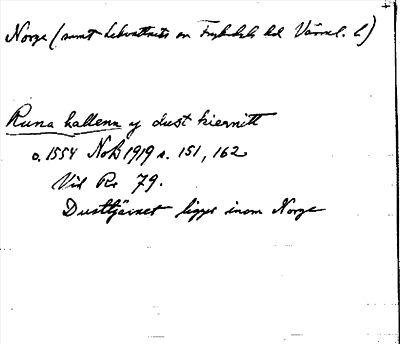 Norge (samt Lekvattnets sn Fryksdals hd Värml. l)
Runa hallenn y dust kiernitt
o. 1554 NoB 1919 s. 151, 162
Vid Rr 79.
Dusttjärnet ligger inom Norge